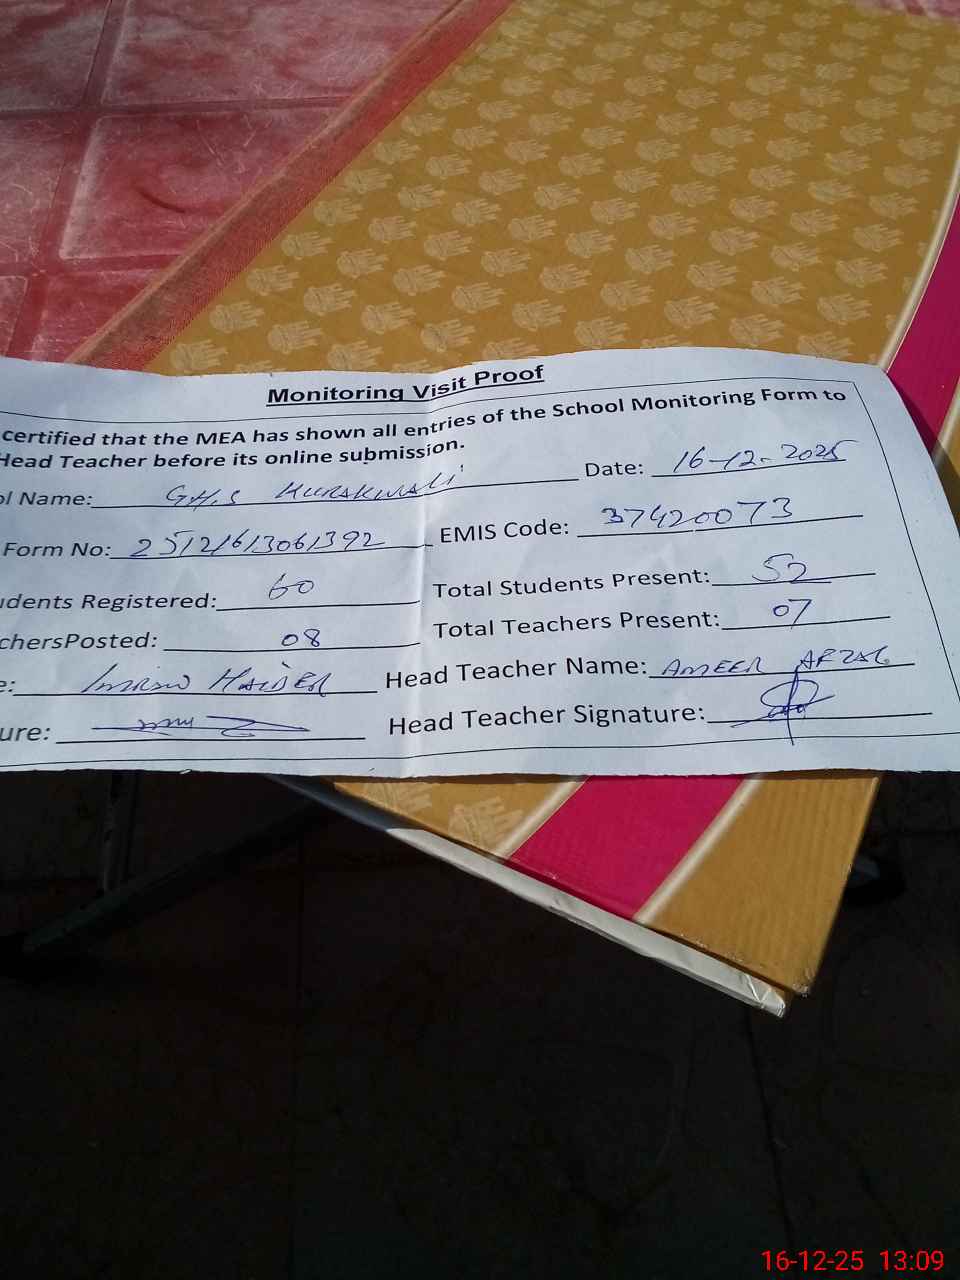 Monitoring Visit Proof
certified that the MEA has shown all entries of the School Monitoring Form to
Head Teacher before its online submission.
ol Name: G.H.S KURAKWALI Date: 16-12-2025
Form No: 25121613061392 EMIS Code: 37420073
udents Registered: 60 Total Students Present: 52
chersPosted: 08 Total Teachers Present: 07
e: IMRAN HAIDER Head Teacher Name: AMEER AFZAL
ure: Head Teacher Signature:
16-12-25 13:09